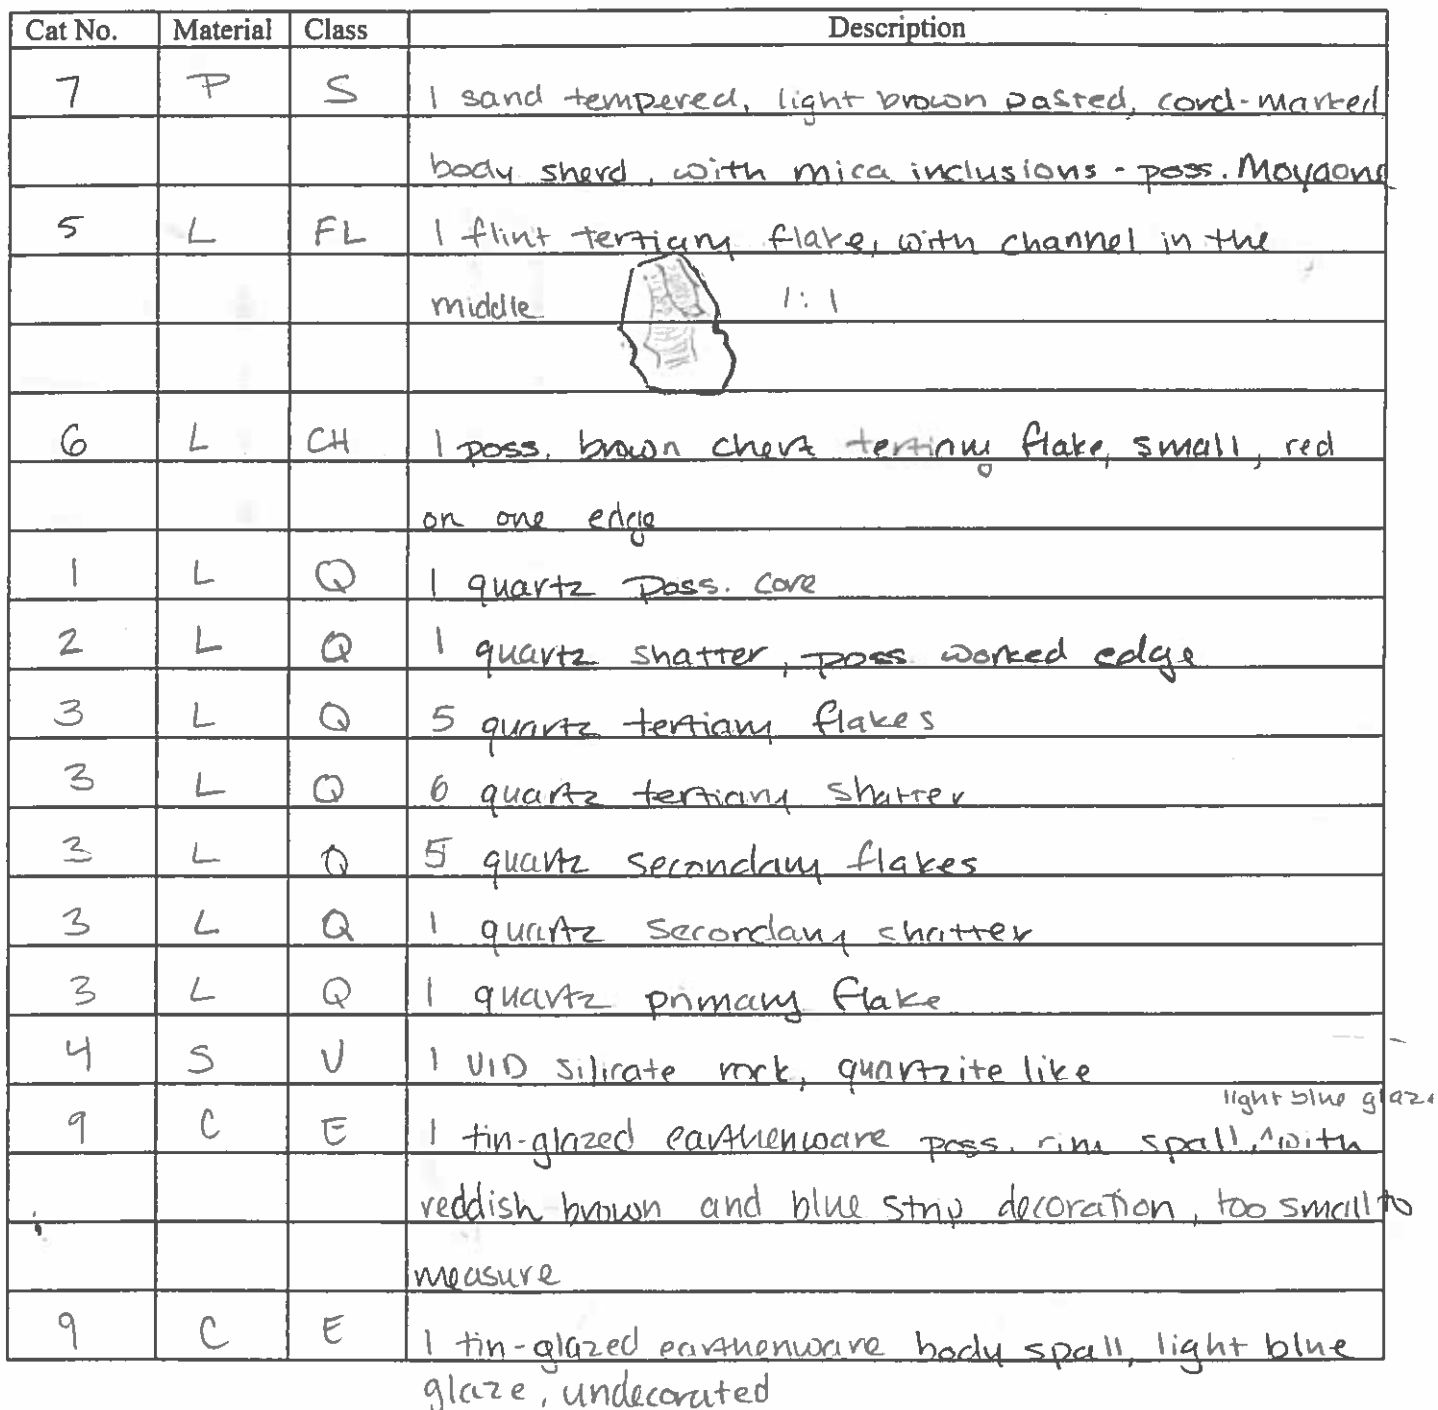 Cat No. Material Class Description
7 P S 1 sand tempered, light brown pasted, cord-marked
body sherd, with mica inclusions - poss. Moyaone
5 L FL 1 flint tertiary flake, with channel in the
middle 1:1
6 L CH 1 poss. brown chert tertiary flake, small, red
on one edge
1 L Q 1 quartz poss. core
2 L Q 1 quartz shatter, poss worked edge
3 L Q 5 quartz tertiary flakes
3 L Q 6 quartz tertiary shatter
3 L Q 5 quartz secondary flakes
3 L Q 1 quartz secondary shatter
3 L Q 1 quartz primary flake
4 S U 1 UID silicate rock, quartzite like
light blue glaze
9 C E 1 tin-glazed earthenware poss. rim spall, ^with
reddish brown and blue strip decoration, too small to
measure
9 C E 1 tin-glazed earthenware body spall, light blue
glaze, undecorated